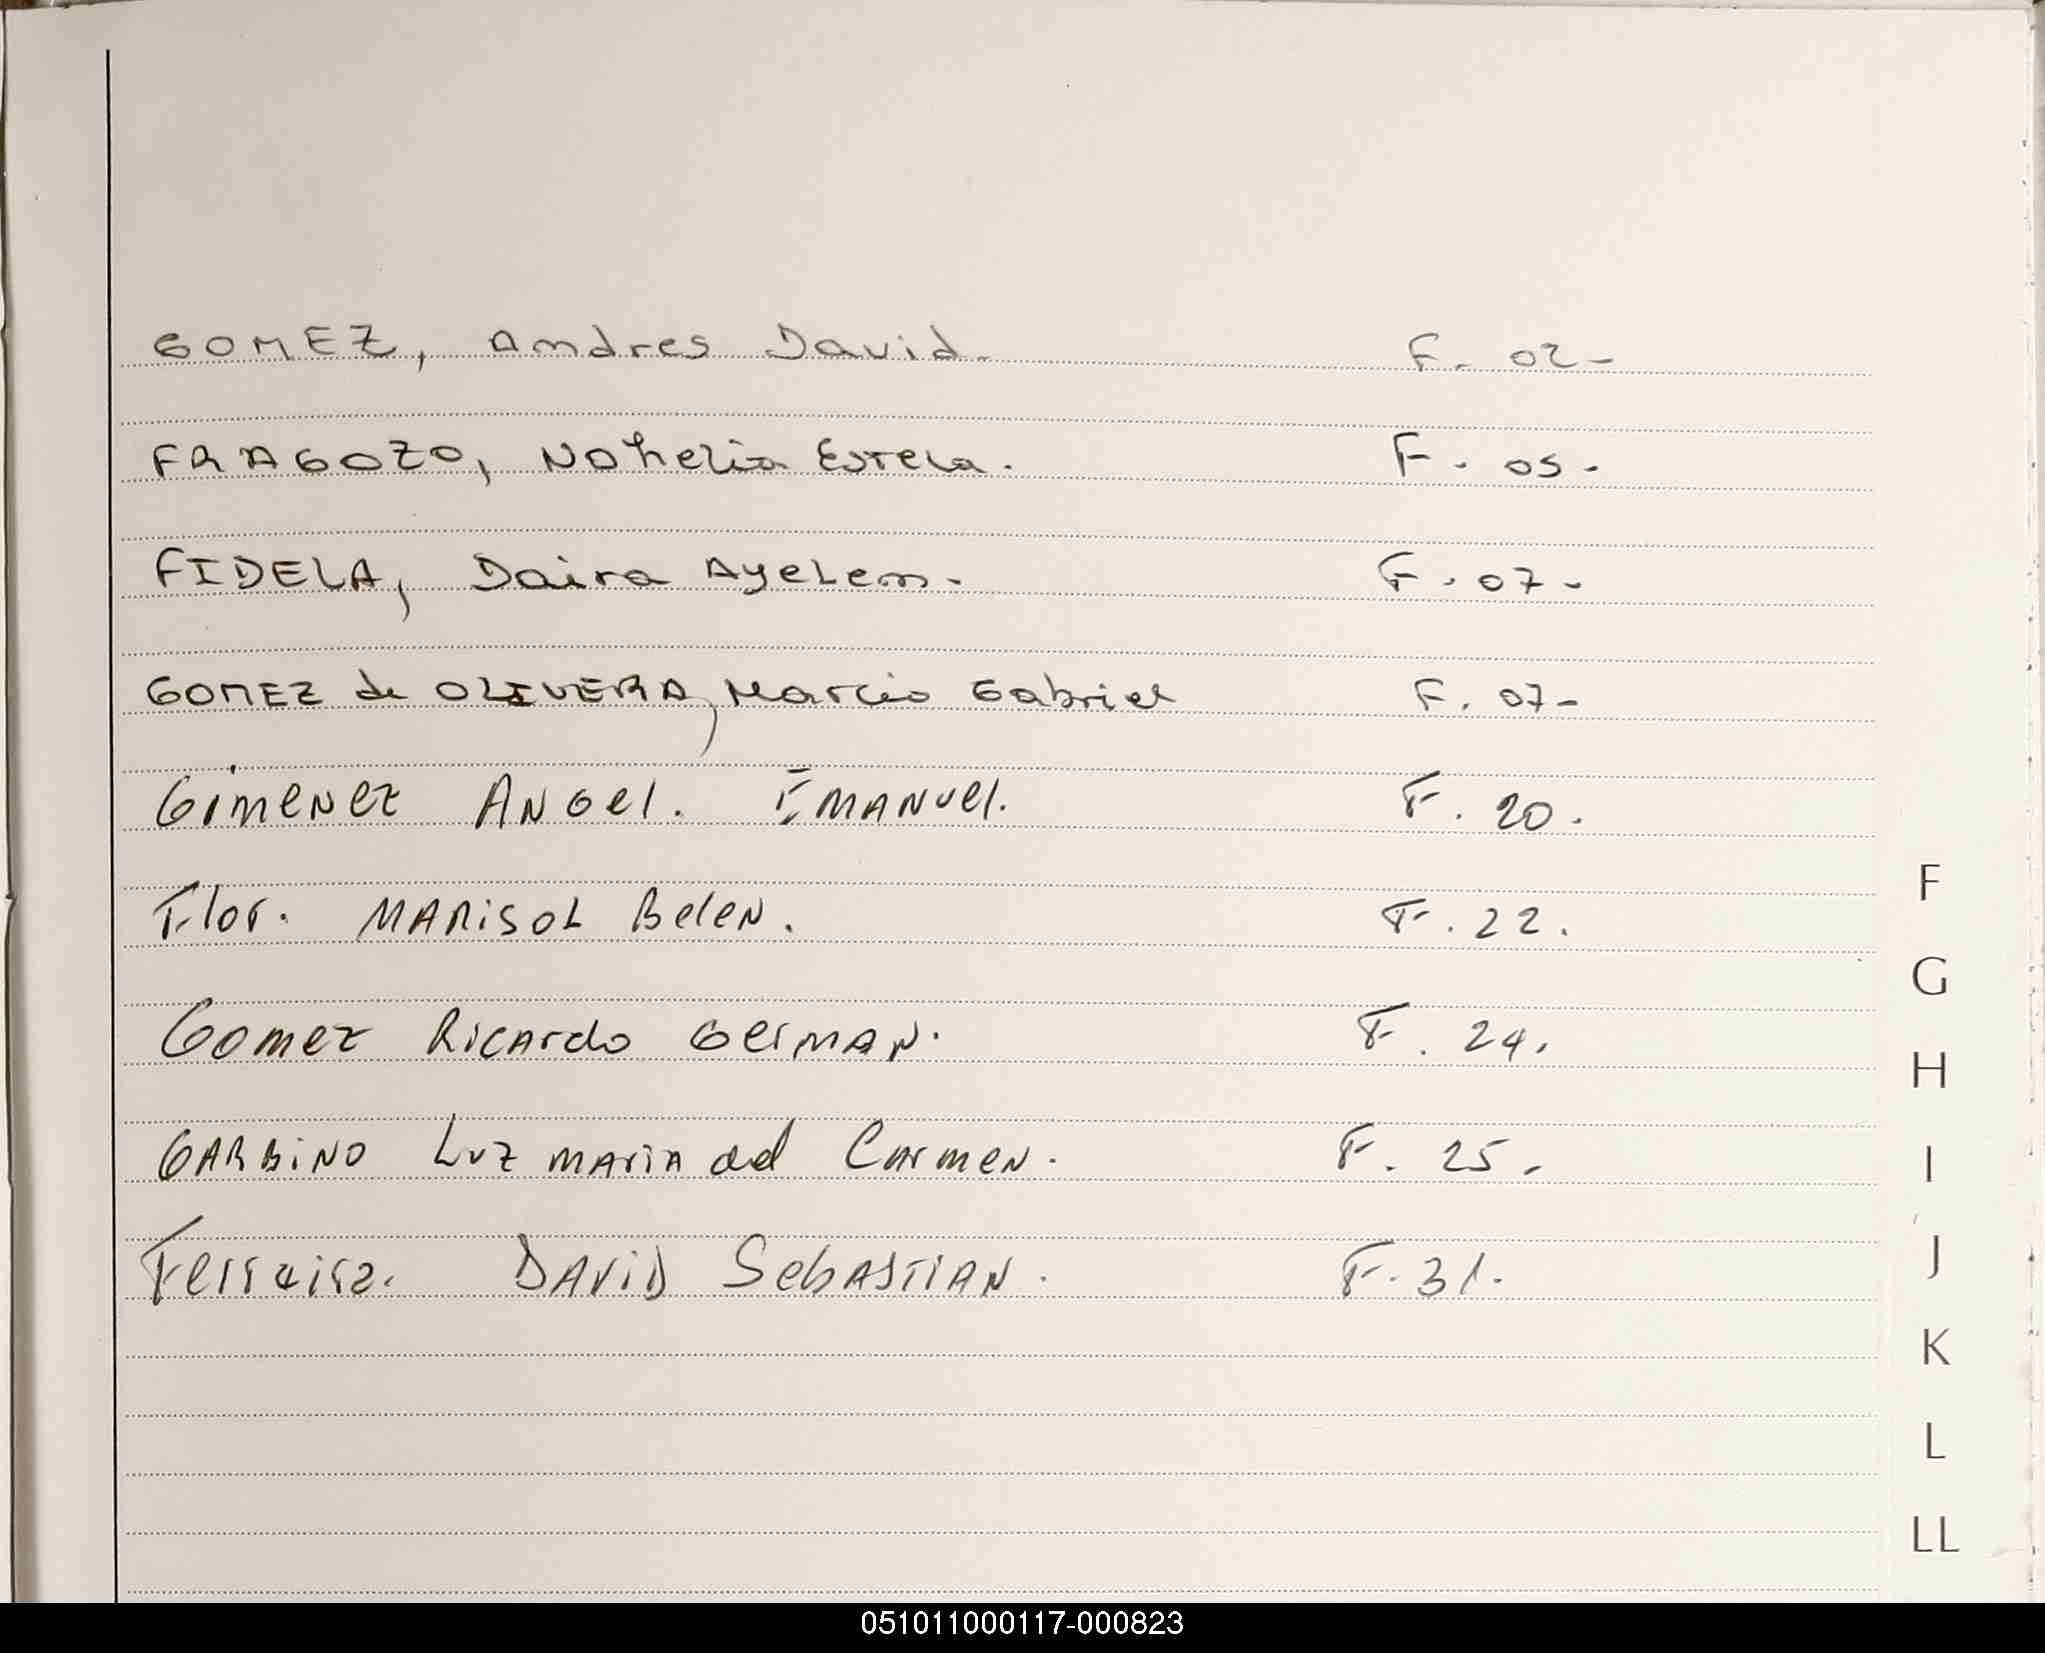 GOMEZ, Andres David. F. 02-
FRAGOZO, Nohelia Estela. F. 05.
FIDELA, Daira Ayelen. F. 07-
GOMEZ de OLIVERA, Marcio Gabriel F. 07-
Gimenez Angel. Emanuel. F. 20.
Flor. Marisol Belen. F. 22.
Gomez Ricardo German. F. 24.
Garbino Luz maria del Carmen. F. 25.
Ferreira. David Sebastian. F. 31.
F
G
H
I
J
K
L
LL
051011000117-000823